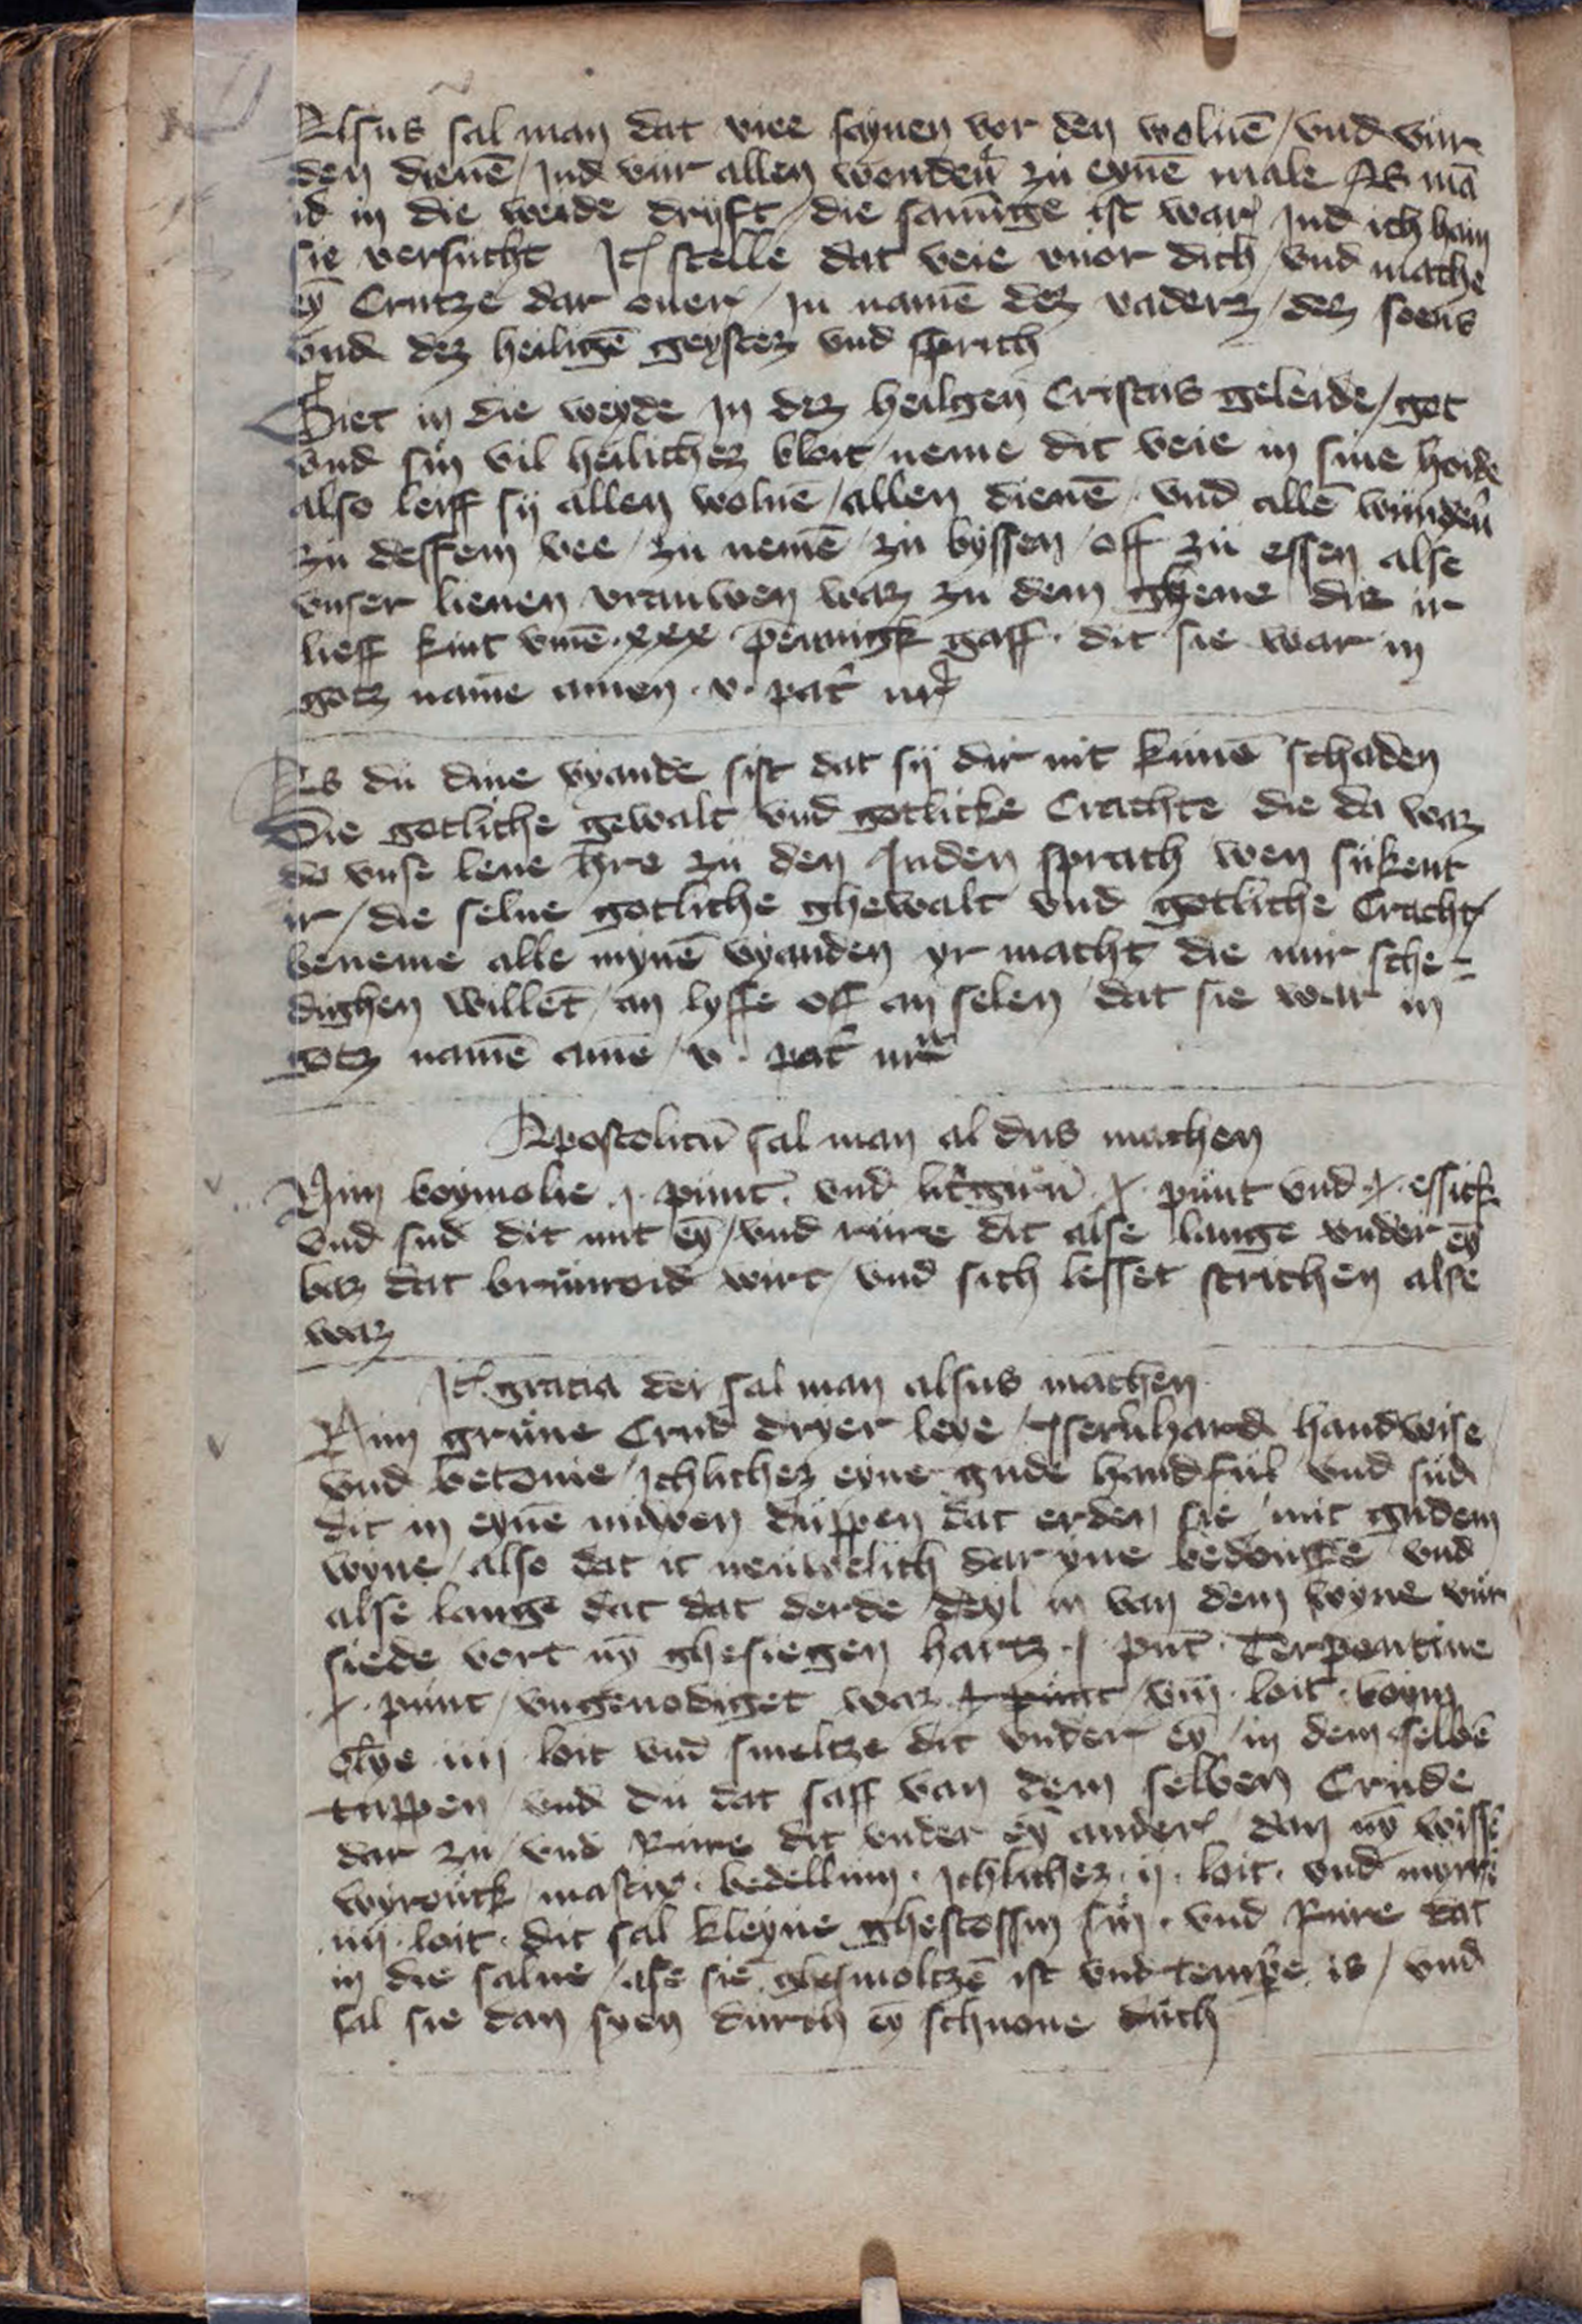 Alsus sal man dat viee saynen vor den woluē / vnd vur
den dieuē / Jnd vur allen wonden zu eynē male As mā
id in die weide dryft / die samnge ist war Jnd ich hain
sie versucht Jt stelle dat veie vuor dich / vnd mache
eȳ Crutze dar ouer / in namē dez vaderz / dez soens
vnd dez heiligē geystez vnd sprich
Giet in die weyde in dez heilgen Cristus geleide / got
vnd sin vil heilichez bloit / neme dit veie in sine hoide
also leiff sij allen woluē / allen dieuē / vnd allē
zu dessem vee / zu nemē / zu byssen / off zu essen alse
vnser lieuen vrauwen waz zu dem ghene die ir
lieff kint vmē · xxx · pennigk gaff · dit sie war in
gotz name amen · v · pat nr
As du dine vyande sist dat sij dir nit kunē schaden
Die gotliche gewalt vnd gotlicke Crachte die da waz
do vnse leue hre zu den Juden sprach wen sukent
ir / die selue gotliche ghewalt vnd gotliche Cracht /
beneme alle mynē vyanden yr macht die mir sche-
dighen willet / an lyffe off an selen / dat sie war in
gotz namē amē / v · pat nr
Apostolicū sal man al dus machen
Nim boymolie · j · punt · vnd litgirū · j · punt vnd · j · essick
vnd sud dit mit eȳ / vnd rure dit alse lange vnder eȳ
baz dat brunroid wirt / vnd sich lesset strichen alse
waz
Jt gracia dei sal man alsus machen
Nim grune Crud dryer leye / Jsernhard handwise
vnd betonie / Jchlichez eyne gude handful vnd sud
dit in eynē nuwen duppen dat erden sie / mit gudem
wyne / also dat it neuwelich dar yne bedouge vnd
alse lange dat dat derde deyl in van dem wyne vur
siede vort nȳ ghesiegen hartz · j · punt · Terpentine
· j · punt / vngenodiget waz j punt / viij · loit · boym
olye iiij loit vnd smeltze dit vnder eȳ / in dem seluē
tuppen / vnd du dat saff van dem selben Crude
dar zu / vnd Rure dit vnder eȳ ander / dan nȳ wisse
wyrouck / mastix · bedellium · Jchlichez · ij · loit · vnd myrre
· iiij · loit · dit sal kleyne ghestossin sin · vnd Rure dat
in die salue / alse sie ghesmoltzē ist vnd tempe is / vnd
sal sie dan syen durch eȳ schuone duch